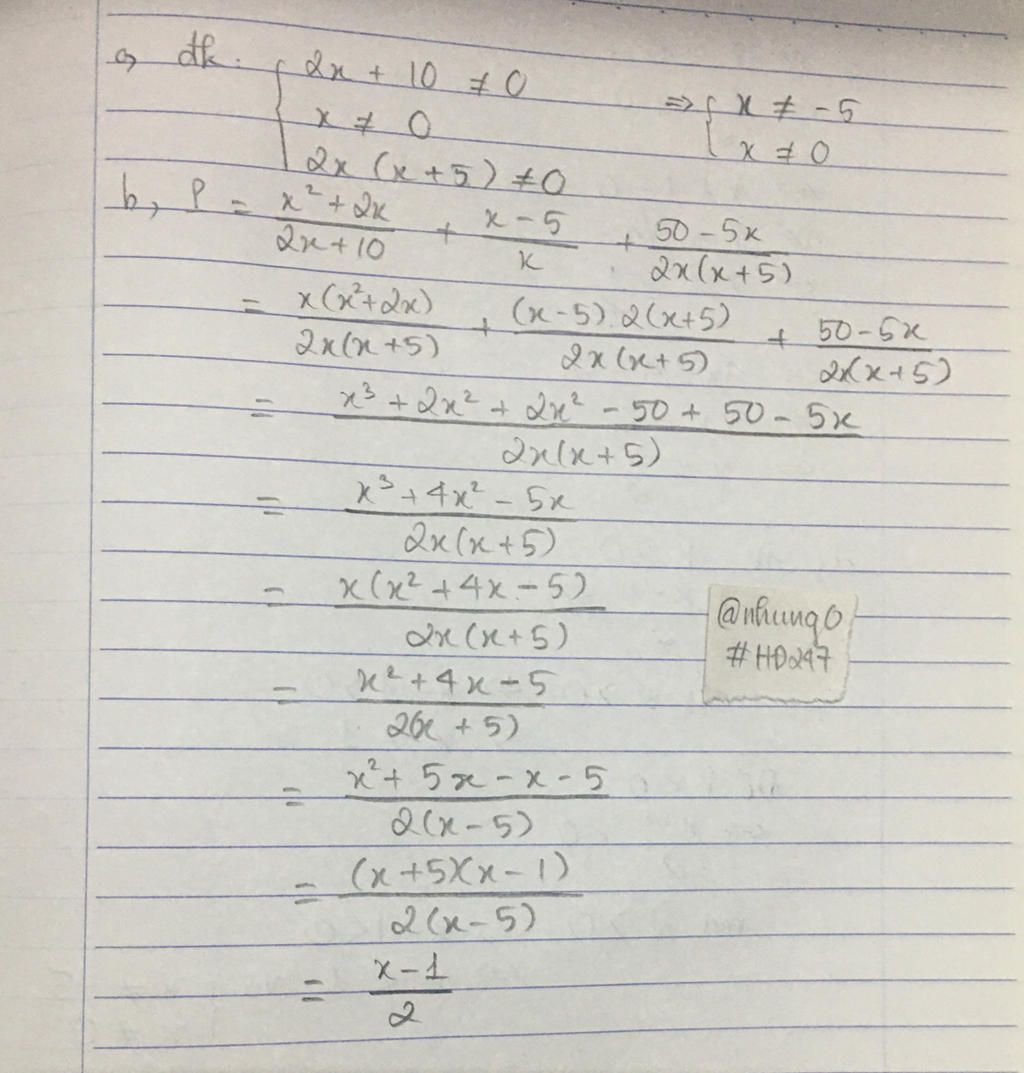 a, đk. { 2x + 10 ≠ 0
x ≠ 0
2x (x + 5) ≠ 0
=> { x ≠ -5
x ≠ 0
b, P = (x² + 2x)/(2x + 10) + (x - 5)/x + (50 - 5x)/(2x(x + 5))
= x(x² + 2x)/(2x(x + 5)) + (x - 5).2(x+5)/(2x(x + 5)) + (50 - 5x)/(2x(x + 5))
= (x³ + 2x² + 2x² - 50 + 50 - 5x)/(2x(x + 5))
= (x³ + 4x² - 5x)/(2x(x + 5))
= x(x² + 4x - 5)/(2x(x + 5))
= (x² + 4x - 5)/(2(x + 5))
= (x² + 5x - x - 5)/(2(x - 5))
= (x + 5)(x - 1)/(2(x - 5))
= (x - 1)/2
@nhung0
#HD247